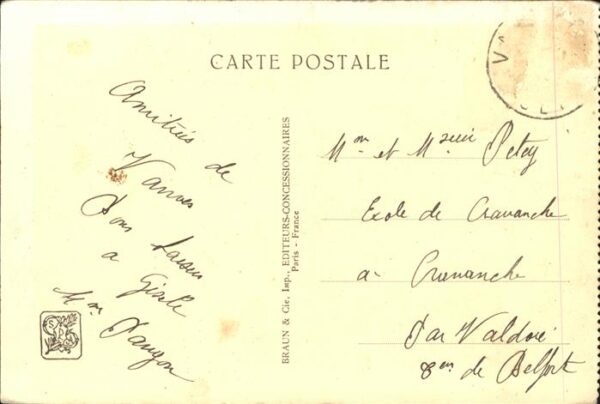 CARTE POSTALE
Amitiés de
Vanves
Bons baisers
a Gisèle
Mme
BRAUN & Cie, Imp., EDITEURS-CONCESSIONNAIRES
Paris - France
Mr et Petey
Ecole de Cravanche
a Cravanche
Par Valdoie
de Belfort
SPA